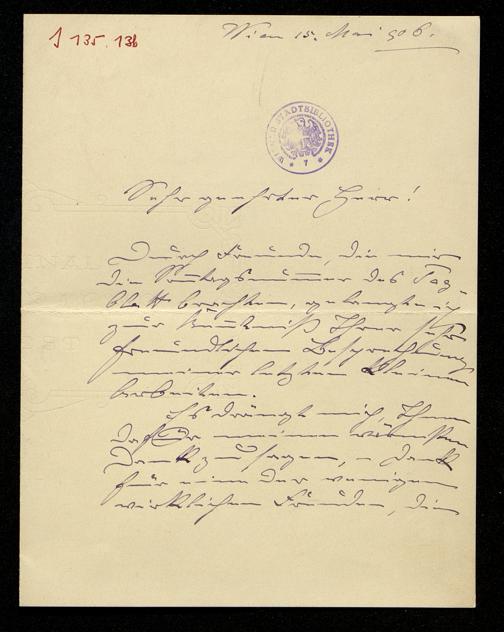 J 135.136
Wien 15. Mai 906.
WIENER STADTBIBLIOTHEK
* 7 *
Sehr geehrter Herr!
Durch Freunde, die mir
die Sonntagsnummer des Tag-
blatt brachten, gelangte ich
zur Kenntniß Ihrer sehr
freundlichen Besprechung
meiner letzten kleinen
Arbeiten.
Es drängt mich Ihnen
dafür meinen wärmsten
Dank zu sagen, – Dank
für eine der wenigen
wirklichen Freuden, die